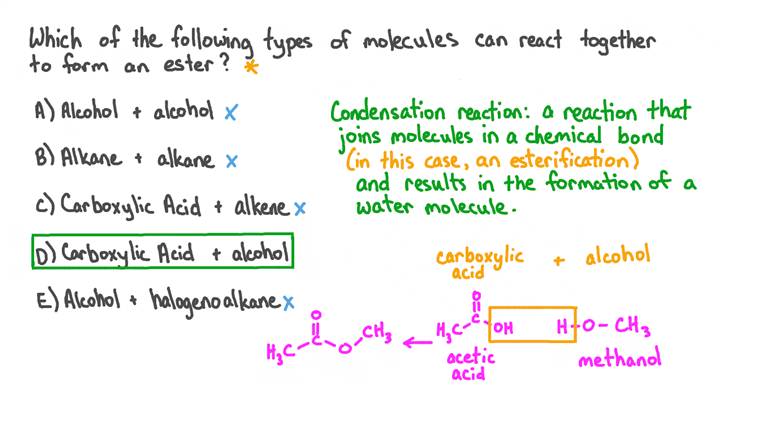 Which of the following types of molecules can react together
to form an ester? *
A) Alcohol + alcohol x
B) Alkane + alkane x
C) Carboxylic Acid + alkene x
D) Carboxylic Acid + alcohol
E) Alcohol + halogenoalkane x
Condensation reaction: a reaction that
joins molecules in a chemical bond
(in this case, an esterification)
and results in the formation of a
water molecule.
carboxylic acid + alcohol
O
H₃C C OH H-O-CH₃
acetic acid methanol
O
H₃C O CH₃ ←